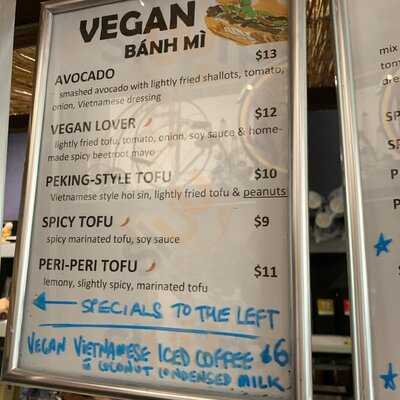 VEGAN
BÁNH MÌ
AVOCADO $13
smashed avocado with lightly fried shallots, tomato,
onion, Vietnamese dressing
VEGAN LOVER $12
lightly fried tofu, tomato, onion, soy sauce & home-
made spicy beetroot mayo
PEKING-STYLE TOFU $10
Vietnamese style hoi sin, lightly fried tofu & peanuts
SPICY TOFU $9
spicy marinated tofu, soy sauce
PERI-PERI TOFU $11
lemony, slightly spicy, marinated tofu
← SPECIALS TO THE LEFT
VEGAN VIETNAMESE ICED COFFEE $6
COCONUT CONDENSED MILK
mix